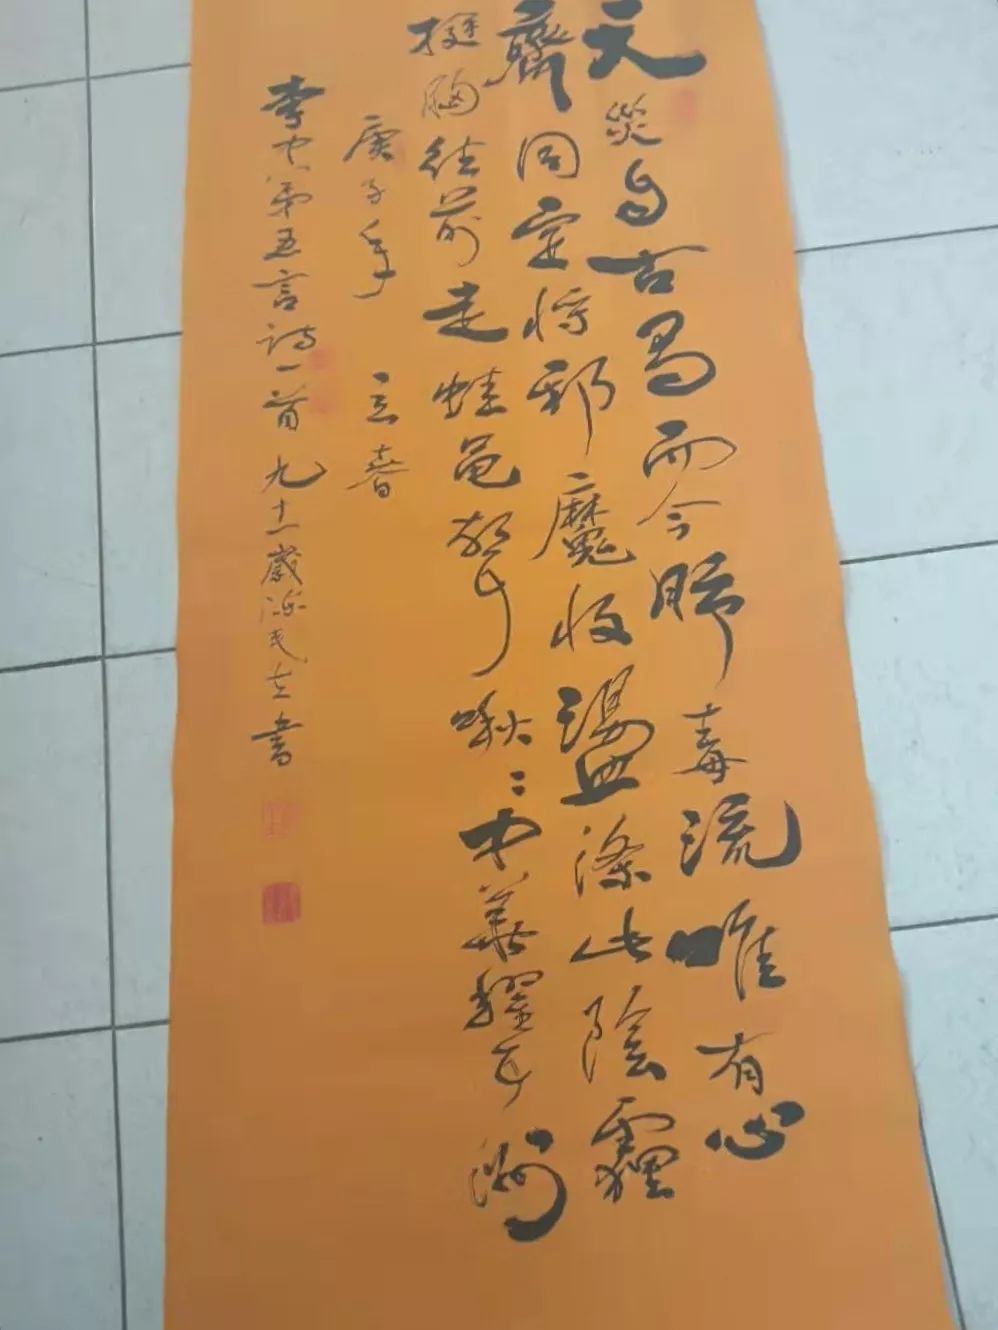 天災自古而今肺毒流唯有心
齊同定將邪魔收盪滌此陰霾
挺胸往前走蛙黽啾〻中華耀洲
庚子年 立春
李弟五言詩一首 九十一歲民左書